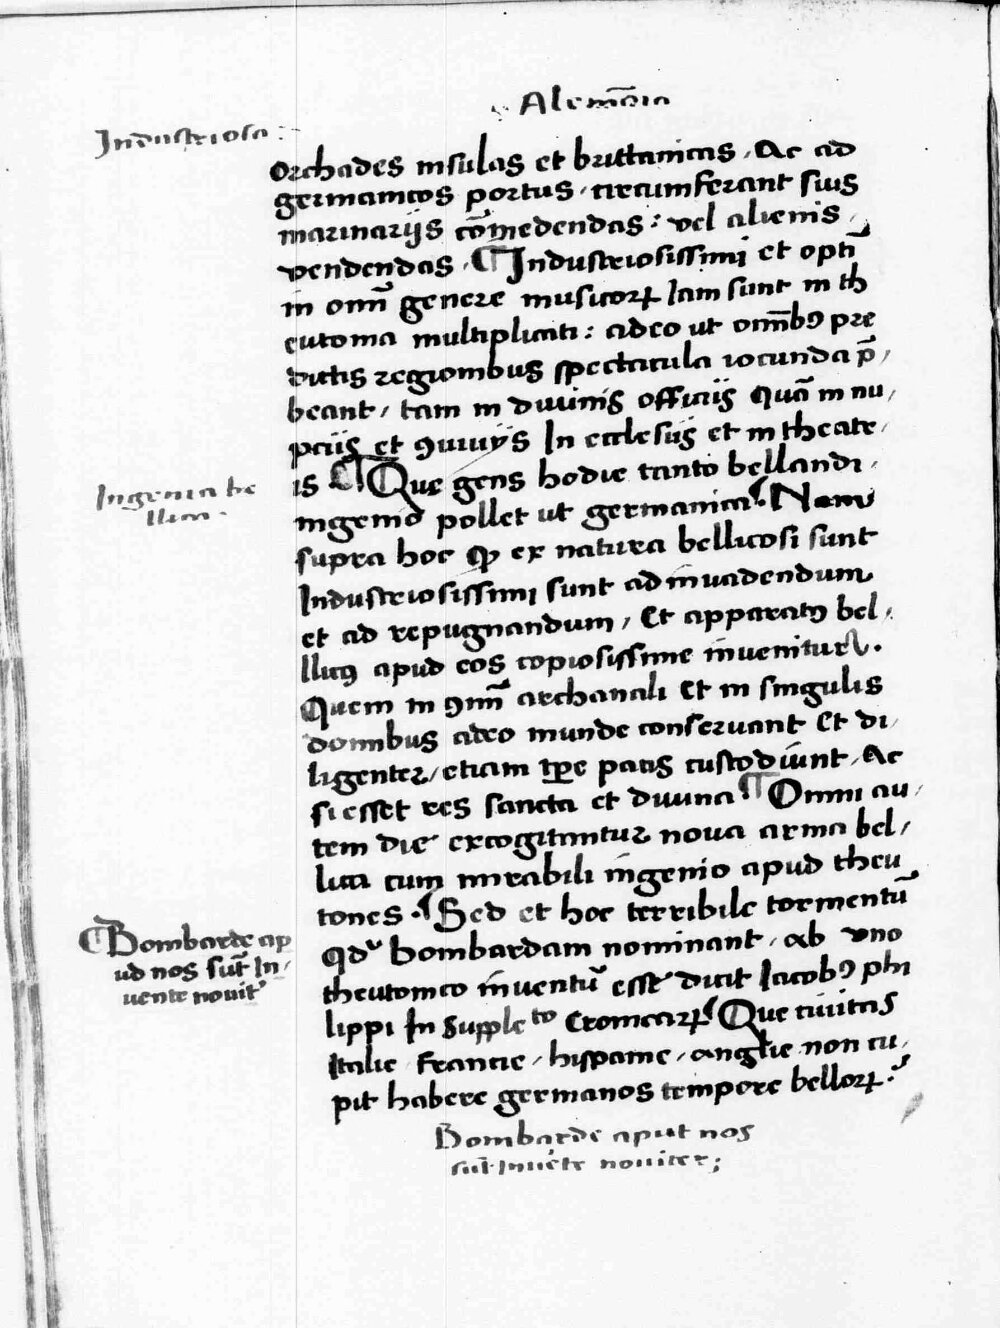 Alemāia
Industriosa:
orchades insulas et brittanicas. Ac ad
germanicos portus. circumferant suis
marinariis cōmedendas: vel alienis
vendendas. ¶ Industriosissimi et opti
in omī genere musicorꝝ Iam sunt in th
eutonia multiplicati: adeo ut omībꝰ pre
dictis regionibus spectacula iocunda p̄/
beant/ tam in diuinis officijs Quā in nu/
pciis et ꝯuiuijs In ecclesiis et in theatr/
is ¶ Que gens hodie tanto bellandi/
Ingenia be
llica.
ingenio pollet ut germanica? Nam
supra hoc ꝙ ex natura bellicosi sunt
Industriosissimi sunt ad inuadendum
et ad repugnandum, Et apparatꝰ bel/
llicꝰ apud eos copiosissime inuenitur.
Quem in ꝯmī archanali Et in singulis
domibus adeo munde conseruant Et di/
ligenter, etiam tꝑe pacis custodiunt. Ac
si esset res sancta et diuina ¶ Omni au/
tem die excogitantur noua arma bel/
lica cum mirabili ingenio apud theu
tones. Sed et hoc terribile tormentū
¶ Bombarde ap
ud nos sūt In/
uente nouit'
qd' bombardam nominant, ab vno
theutonico inuentū esse dicit Iacobꝰ phi
lippi In Suppleto Cronicarꝝ Que ciuitas
Italie francie, hispanie, anglie non cu/
pit habere germanos tempore bellorꝝ?
Bombarde aput nos
sūt Inuēte nouiter;